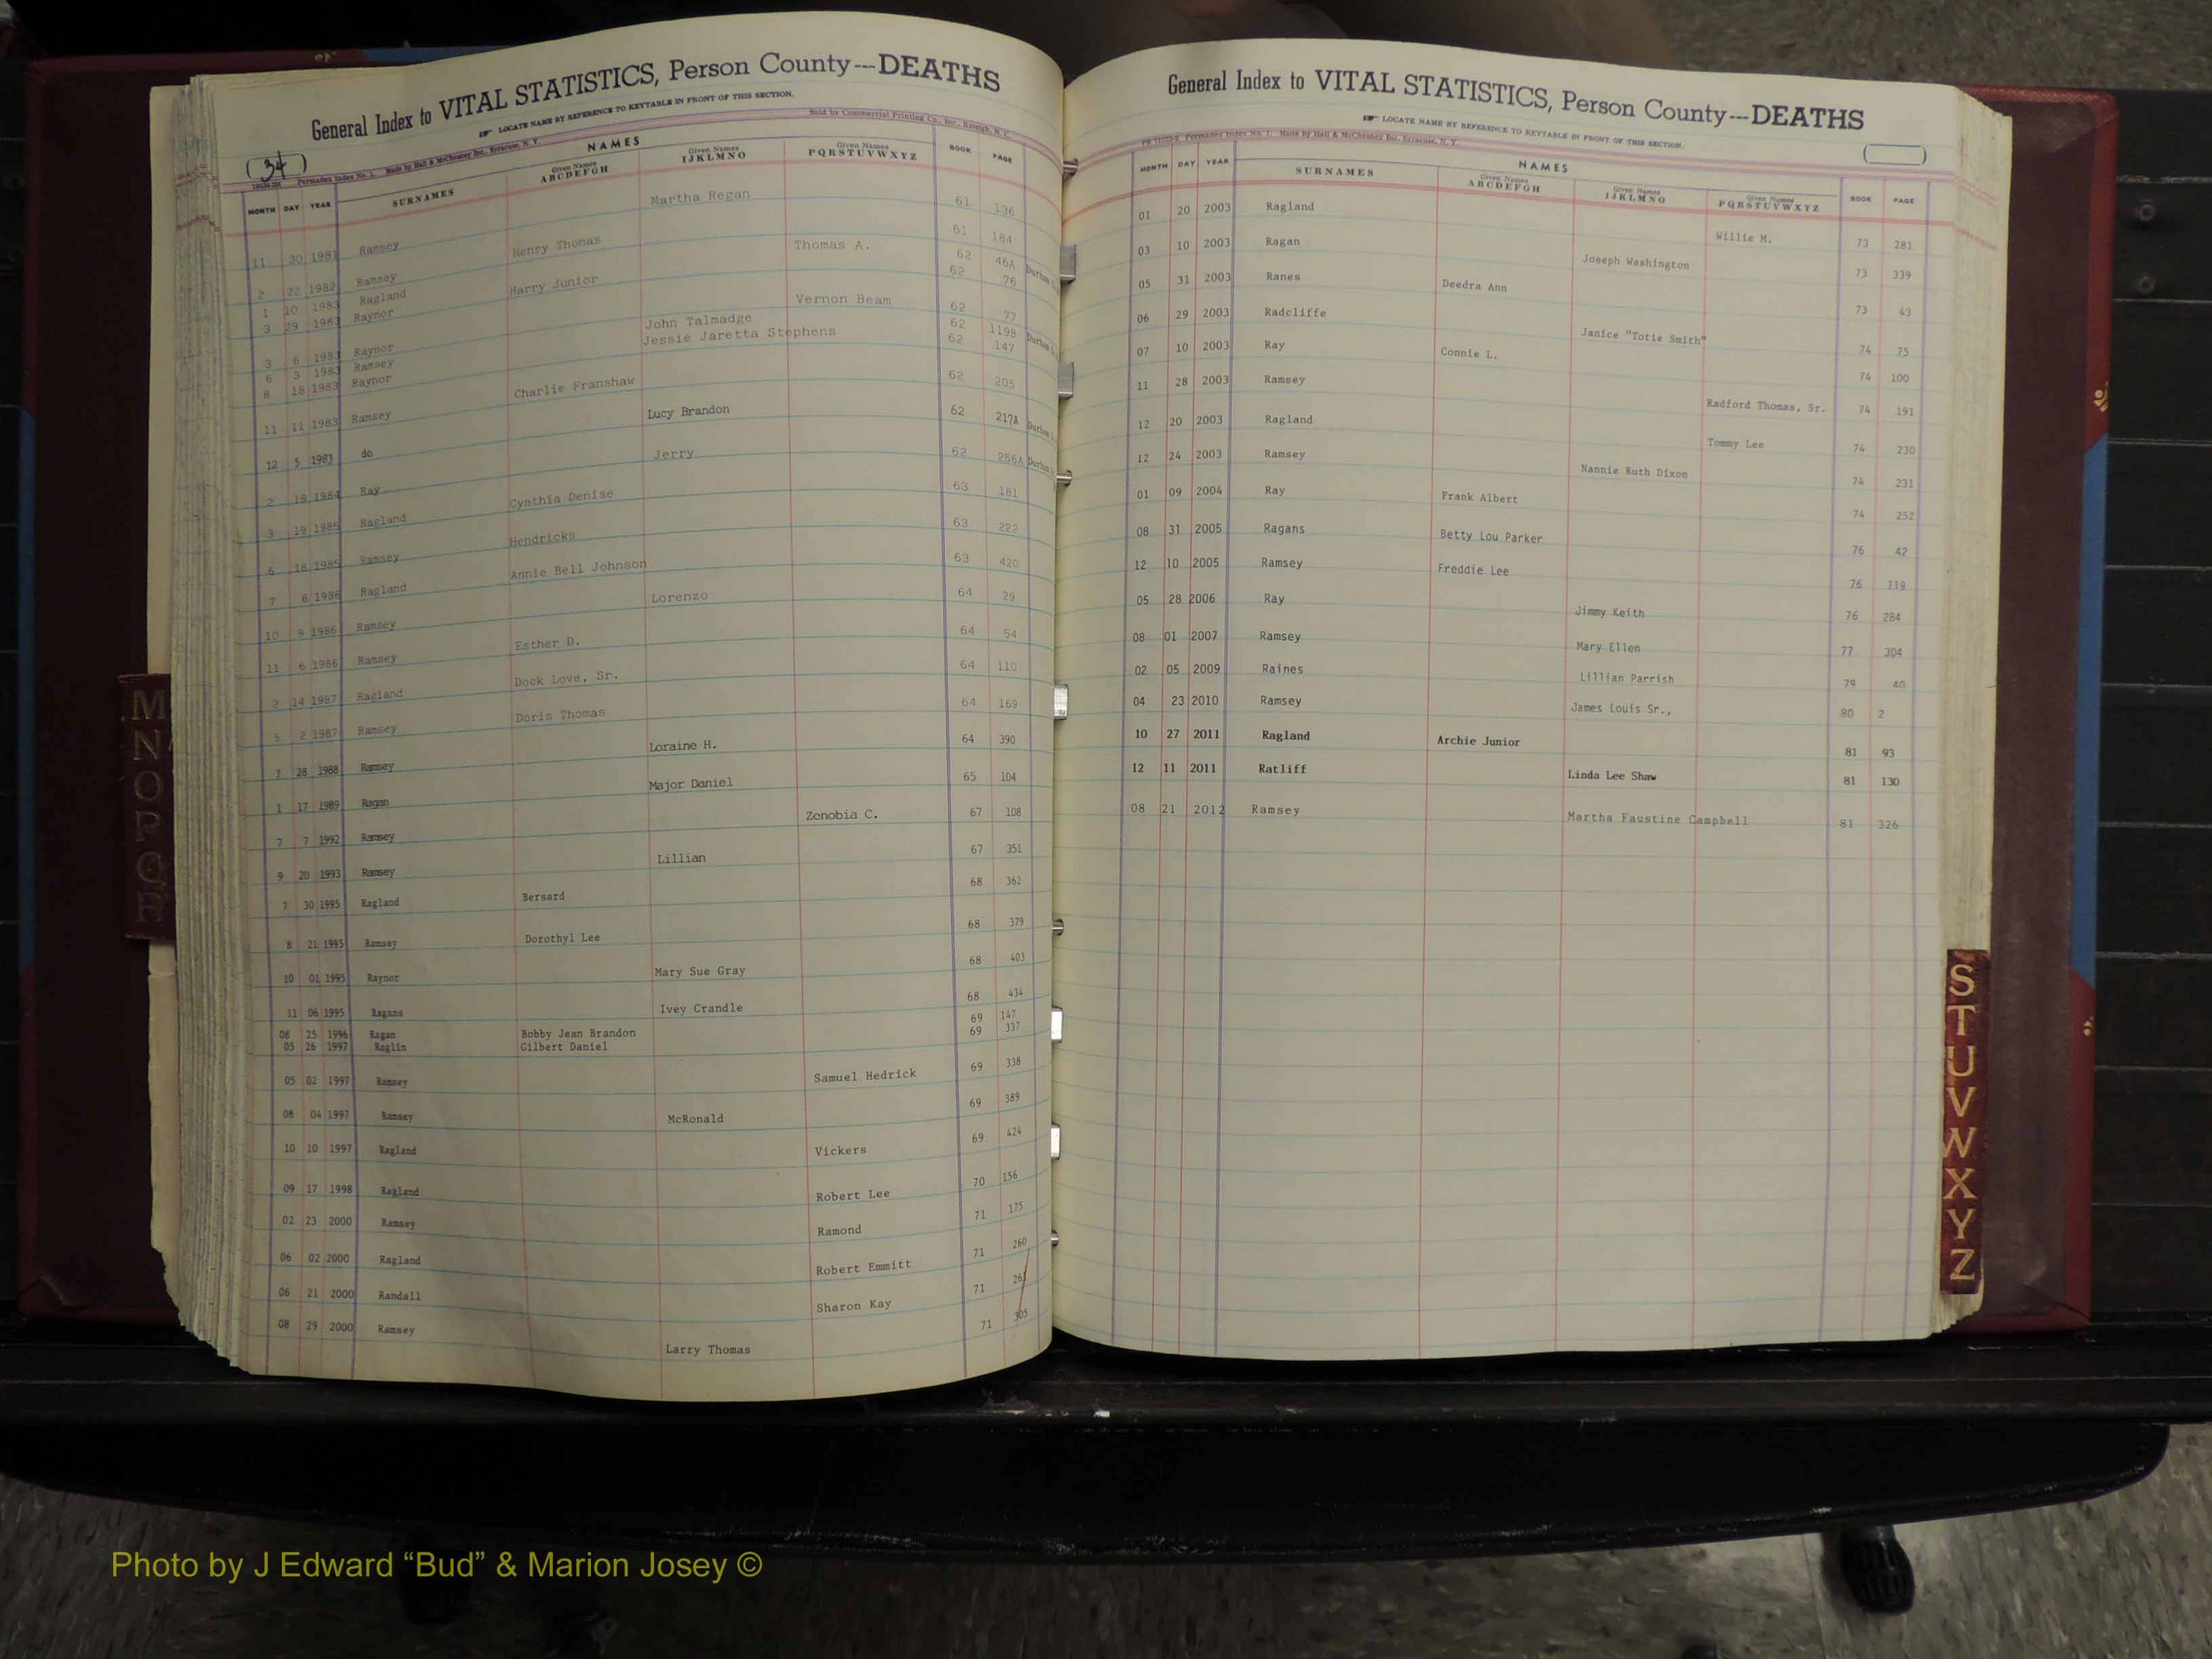 General Index to VITAL STATISTICS, Person County---DEATHS
LOCATE NAME BY REFERENCE TO KEYTABLE IN FRONT OF THIS SECTION.
Sold by Commercial Printing Co., Inc., Raleigh, N. C.
(34)
Permadex Index No. 1. Made by Hall & McChesney Inc., Syracuse, N. Y.
NAMES
MONTH DAY YEAR SURNAMES Given Names ABCDEFGH Given Names IJKLMNO Given Names PQRSTUVWXYZ BOOK PAGE
11 30 1981 Ramsey Martha Regan 61 136
2 22 1982 Ramsey Henry Thomas 61 184
1 10 1983 Ragland Thomas A. 62 46A Durham
3 29 1983 Raynor Harry Junior 62 76
3 6 1983 Raynor Vernon Beam 62 77
6 3 1983 Ramsey John Talmadge 62 119B Durham
8 18 1983 Raynor Jessie Jaretta Stephens 62 147
11 11 1983 Ramsey Charlie Franshaw 62 205
12 5 1983 do Lucy Brandon 62 217A Durham
2 18 1984 Ray Jerry 62 256A Durham
3 19 1985 Ragland Cynthia Denise 63 181
6 18 1985 Ramsey Hendricks 63 222
7 6 1986 Ragland Annie Bell Johnson 63 420
10 9 1986 Ramsey Lorenzo 64 29
11 6 1986 Ramsey Esther D. 64 54
2 14 1987 Ragland Dock Love, Sr. 64 110
5 2 1987 Ramsey Doris Thomas 64 169
7 28 1988 Ramsey Loraine H. 64 390
1 17 1989 Ragan Major Daniel 65 104
7 7 1992 Ramsey Zenobia C. 67 108
9 20 1993 Ramsey Lillian 67 351
7 30 1995 Ragland Bersard 68 362
8 21 1995 Ramsey Dorothyl Lee 68 379
10 01 1995 Raynor Mary Sue Gray 68 403
11 06 1995 Ragans Ivey Crandle 68 434
08 25 1996 Ragan Bobby Jean Brandon 69 147
05 26 1997 Raglin Gilbert Daniel 69 337
05 02 1997 Ramsey Samuel Hedrick 69 338
08 04 1997 Ramsey McRonald 69 389
10 10 1997 Ragland Vickers 69 424
09 17 1998 Ragland Robert Lee 70 156
02 23 2000 Ramsey Ramond 71 175
06 02 2000 Ragland Robert Emmitt 71 260
06 21 2000 Randall Sharon Kay 71 261
08 29 2000 Ramsey Larry Thomas 71 305
M
N
O
P
Q
R
General Index to VITAL STATISTICS, Person County---DEATHS
LOCATE NAME BY REFERENCE TO KEYTABLE IN FRONT OF THIS SECTION.
Permadex Index No. 1. Made by Hall & McChesney Inc. Syracuse, N. Y.
NAMES
MONTH DAY YEAR SURNAMES Given Names ABCDEFGH Given Names IJKLMNO Given Names PQRSTUVWXYZ BOOK PAGE
01 20 2003 Ragland Willie M. 73 281
03 10 2003 Ragan Joseph Washington 73 339
05 31 2003 Ranes Deedra Ann 73 43
06 29 2003 Radcliffe Janice "Totie Smith" 74 75
07 10 2003 Ray Connie L. 74 100
11 28 2003 Ramsey Radford Thomas, Sr. 74 191
12 20 2003 Ragland Tommy Lee 74 230
12 24 2003 Ramsey Nannie Ruth Dixon 74 231
01 09 2004 Ray Frank Albert 74 252
08 31 2005 Ragans Betty Lou Parker 76 42
12 10 2005 Ramsey Freddie Lee 76 119
05 28 2006 Ray Jimmy Keith 76 284
08 01 2007 Ramsey Mary Ellen 77 304
02 05 2009 Raines Lillian Parrish 79 40
04 23 2010 Ramsey James Louis Sr., 80 2
10 27 2011 Ragland Archie Junior 81 93
12 11 2011 Ratliff Linda Lee Shaw 81 130
08 21 2012 Ramsey Martha Faustine Campbell 81 326
S
T
U
V
W
X
Y
Z
Photo by J Edward “Bud” & Marion Josey ©